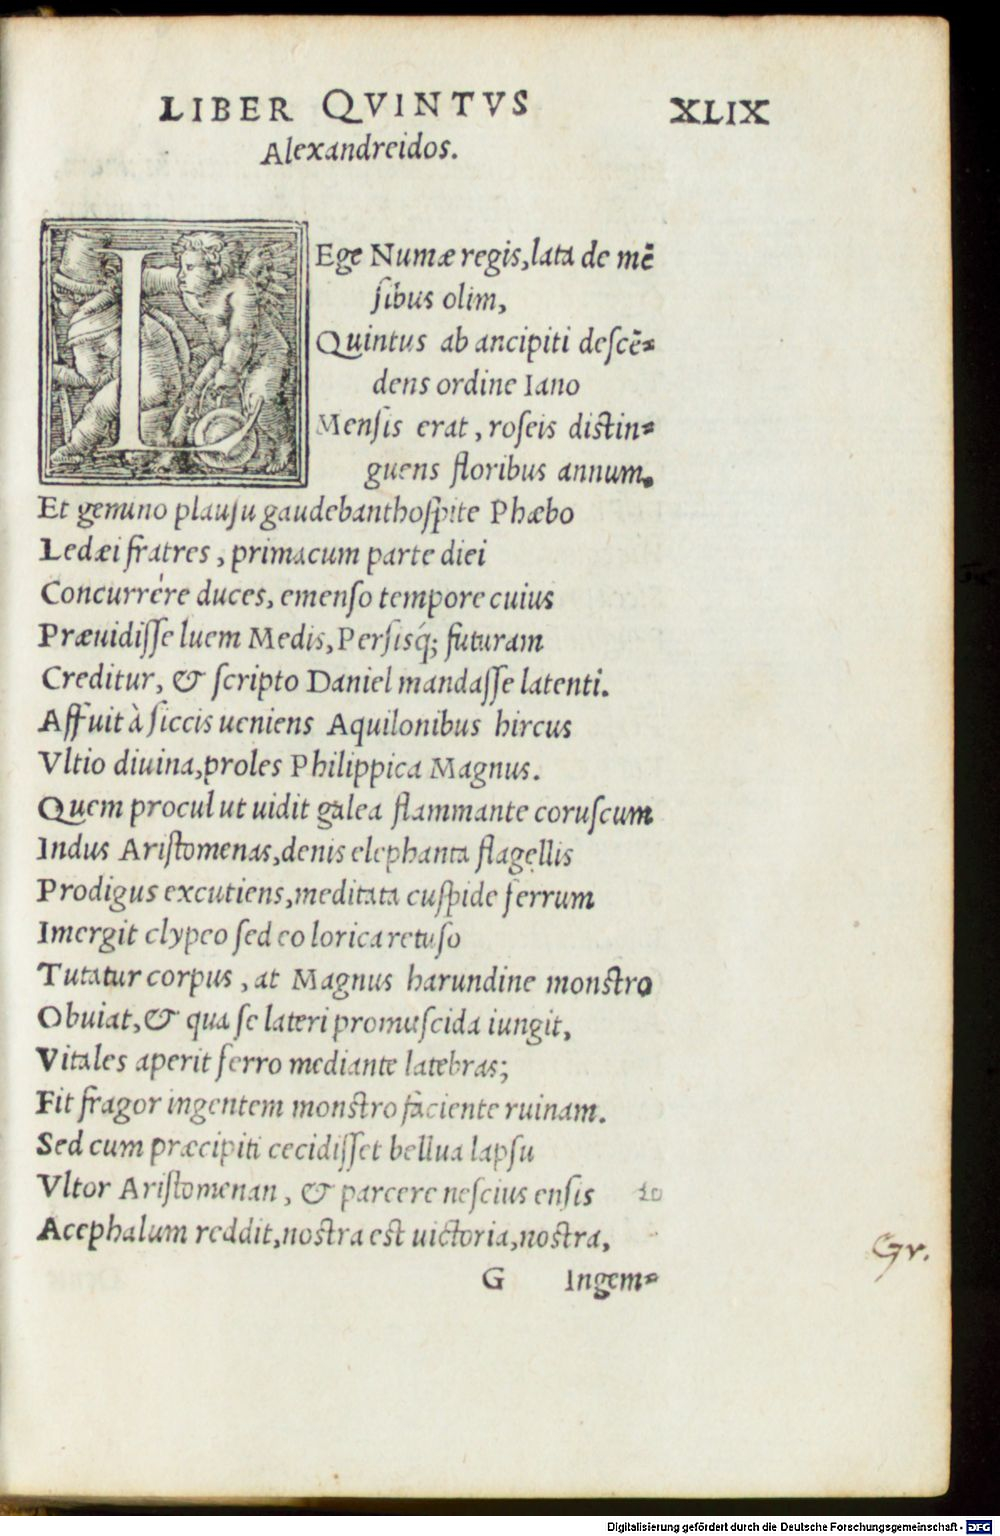 LIBER QVINTVS XLIX
Alexandreidos.
LEge Numæ regis, lata de mẽ
sibus olim,
Quintus ab ancipiti descẽ-
dens ordine Iano
Mensis erat, roseis distin-
guens floribus annum.
Et gemino plausu gaudebanthospite Phæbo
Ledæi fratres, primacum parte diei
Concurrére duces, emenso tempore cuius
Præuidisse luem Medis, Persisq́; futuram
Creditur, & scripto Daniel mandasse latenti.
Affuit à siccis ueniens Aquilonibus hircus
Vltio diuina, proles Philippica Magnus.
Quem procul ut uidit galea flammante coruscum
Indus Aristomenas, denis elephanta flagellis
Prodigus excutiens, meditata cuspide ferrum
Imergit clypeo sed eo lorica retuso
Tutatur corpus, at Magnus harundine monstro
Obuiat, & qua se lateri promuscida iungit,
Vitales aperit ferro mediante latebras;
Fit fragor ingentem monstro faciente ruinam.
Sed cum præcipiti cecidisset bellua lapsu
Vltor Aristomenan, & parcere nescius ensis 20
Acephalum reddit, nostra est uictoria, nostra,
Gr.
G Ingem-
Digitalisierung gefördert durch die Deutsche Forschungsgemeinschaft - DFG